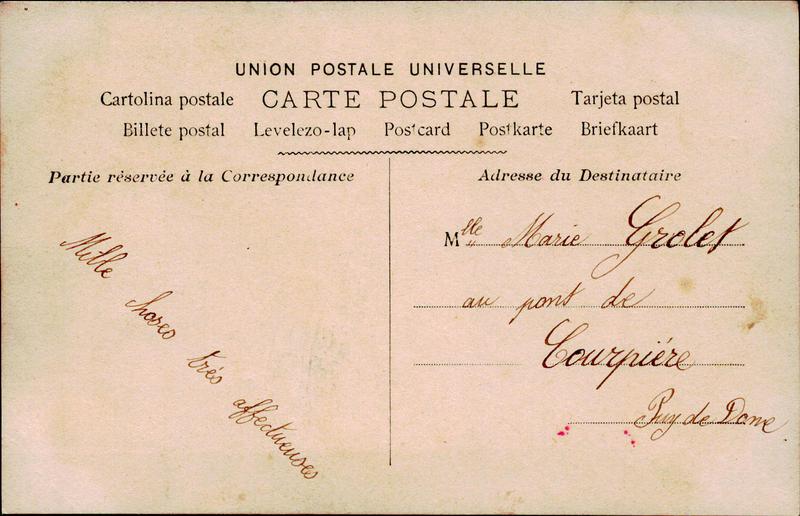 UNION POSTALE UNIVERSELLE
Cartolina postale CARTE POSTALE Tarjeta postal
Billete postal Levelezo-lap Postcard Postkarte Briefkaart
Partie réservée à la Correspondance
Mille choses très affectueuses
Adresse du Destinataire
Mlle Marie Grolet
au pont de
Courpière
Puy de Dome